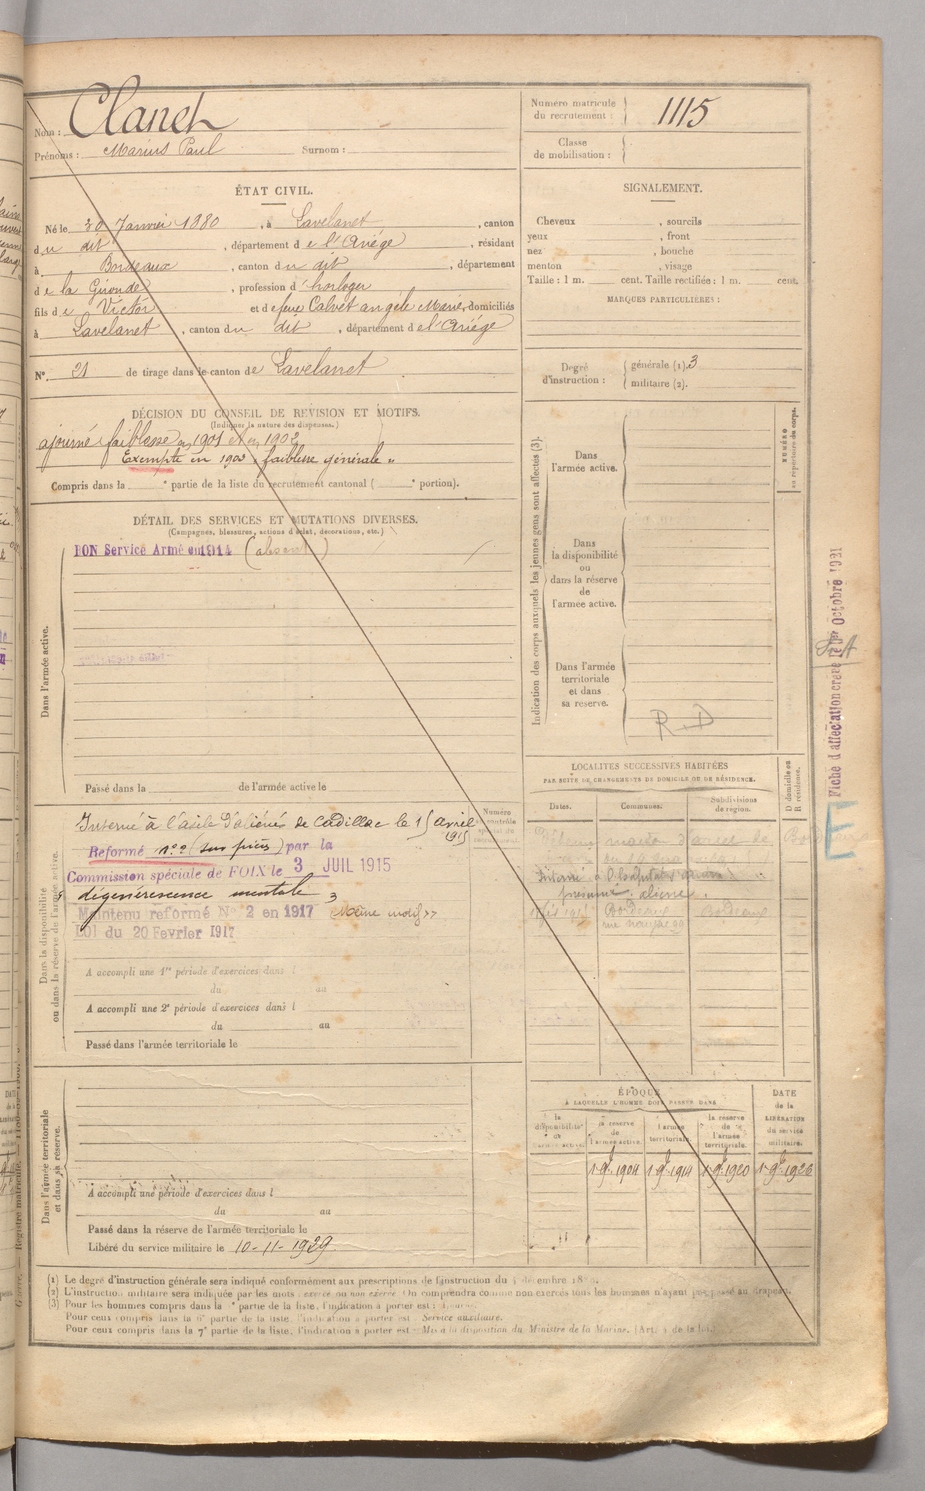 Nom : Clanet
Prénoms : Marius Paul Surnom :
Numéro matricule
du recrutement : 1115
Classe
de mobilisation :
ÉTAT CIVIL.
Né le 30 Janvier 1880, à Lavelanet, canton
du dit, département de l'Ariége, résidant
à Bordeaux, canton du dit, département
de la Gironde, profession d'horloger
fils de Victor et de feue Calvet angele Marie, domiciliés
à Lavelanet, canton du dit, département de l'Ariége
N° 21 de tirage dans le canton de Lavelanet
DÉCISION DU CONSEIL DE RÉVISION ET MOTIFS.
(Indiquer la nature des dispenses.)
ajourné faiblesse en 1901 et en 1902
Exempté en 1903 « faiblesse générale »
Compris dans la ° partie de la liste du recrutement cantonal ( ° portion).
DÉTAIL DES SERVICES ET MUTATIONS DIVERSES.
(Campagnes, blessures, actions d'éclat, décorations, etc.)
BON Service Armé en 1914 (absent)
Dans l'armée active.
Passé dans la de l'armée active le
Dans la disponibilité
ou dans la réserve de l'armée active.
Interné à l'asile d'aliénés de Cadillac le 15 avril
1915
Reformé n° 2 (sur pièces) par la
Commission spéciale de FOIX le 3 JUIL 1915
dégénérescence mentale
Maintenu reformé N° 2 en 1917 Même motif »
LOI du 20 Fevrier 1917
A accompli une 1re période d'exercices dans l
du au
A accompli une 2e période d'exercices dans l
du au
Passé dans l'armée territoriale le
Dans l'armée territoriale
et dans sa réserve.
A accompli une période d'exercices dans l
du au
Passé dans la réserve de l'armée territoriale le
Libéré du service militaire le 10-11-1929
SIGNALEMENT.
Cheveux , sourcils
yeux , front
nez , bouche
menton , visage
Taille : 1 m. cent. Taille rectifiée : 1 m. cent.
MARQUES PARTICULIÈRES :
Degré
d'instruction :
générale (1). 3
militaire (2).
Indication des corps auxquels les jeunes gens sont affectés (3).
NUMÉRO
au répertoire du corps.
Dans
l'armée active.
Dans
la disponibilité
ou
dans la réserve
de
l'armée active.
Dans l'armée
territoriale
et dans
sa réserve.
R D
Fiche d'affectation créée le 1er Octobre 1921
E
LOCALITÉS SUCCESSIVES HABITÉES
PAR SUITE DE CHANGEMENTS DE DOMICILE OU DE RÉSIDENCE.
D domicile ou
R résidence.
Dates. Communes. Subdivisions
de région.
Interné à l'
présumé aliéné.
Bordeaux Bordeaux
ÉPOQUE
À LAQUELLE L'HOMME DOIT PASSER DANS
la
disponibilité
de
l'armée active.
la réserve
de
l'armée active.
l'armée
territoriale.
la réserve
de
l'armée
territoriale.
DATE
de la
LIBÉRATION
du service
militaire.
1 9bre 1904 1 9bre 1914 1 9bre 1920 1 9bre 1926
(1) Le degré d'instruction générale sera indiqué conformément aux prescriptions de l'instruction du décembre
(2) L'instruction militaire sera indiquée par les mots : exercé ou non exercé. On comprendra comme non exercés tous les hommes n'ayant pas passé au drapeau.
(3) Pour les hommes compris dans la ° partie de la liste, l'indication à porter est :
Pour ceux compris dans la 6e partie de la liste, l'indication à porter est : Service auxiliaire.
Pour ceux compris dans la 7e partie de la liste, l'indication à porter est : Mis à la disposition du Ministre de la Marine. (Art. 4 de la loi.